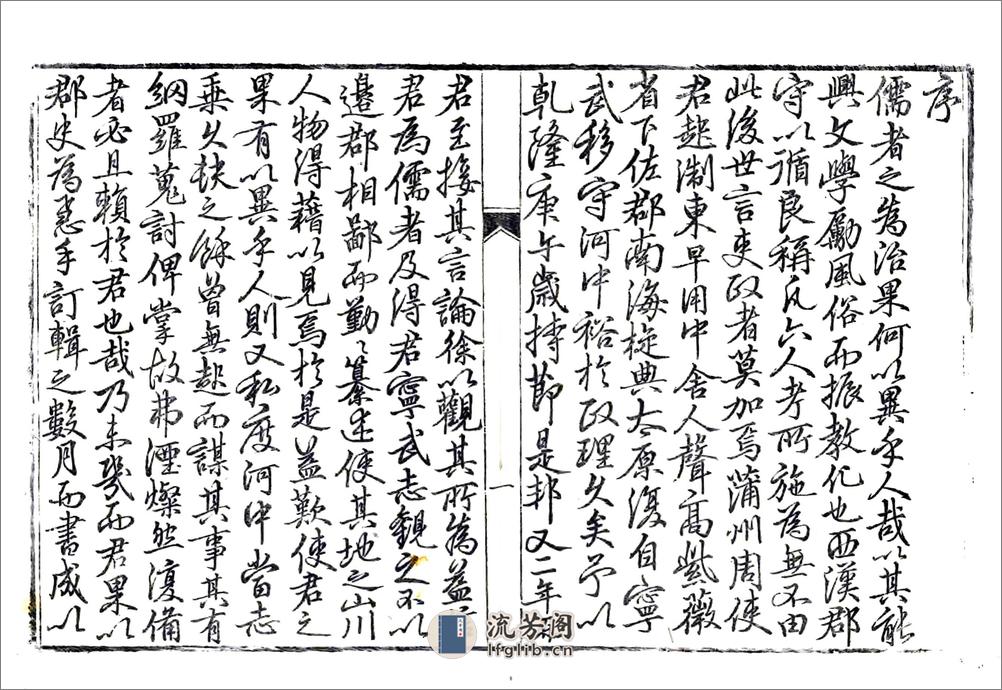 序
儒者之為治果何以異乎人哉以其能
興文學勵風俗而振教化也西漢郡
守以循良稱凡六人考所施為無不由
此後世言吏政者莫加焉蒲州周使
君起淛東早用中舍人聲高紫薇
省下佐郡南海旋典太原復自寧
武移守河中裕於政理久矣予以
乾隆庚午歲持節是邦又二年
君至接其言論徐以觀其所為益
君為儒者及得君寧武志觀之不以
邊郡相鄙而勤勤纂述使其地之山川
人物得藉以見焉於是益歎使君之
果有以異乎人則又私度河中嘗志
乘久缺之餘曾無起而謀其事其有
網羅蒐討俾掌故弗湮燦然復備
者必且賴於君也哉乃未幾而君果以
郡史為意手訂輯之數月而書成以
一
流芳阁
lfglib.cn